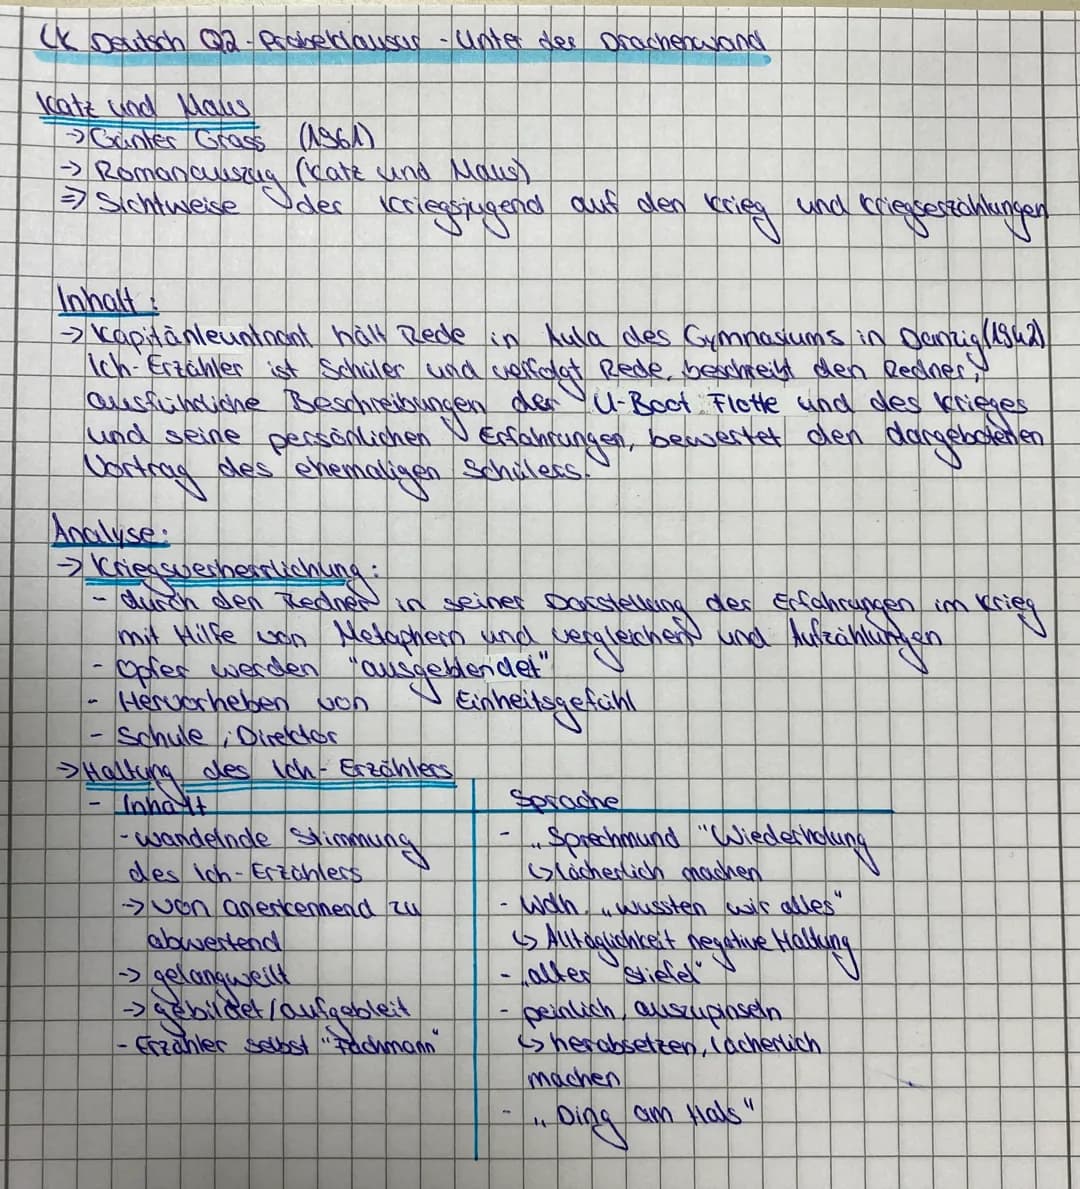 LK Deutsch Q2 - Probeklausur - Unter der Drachenwand
Katz und Maus
→ Günter Grass (1961)
→ Romanauszug (Katz und Maus)
⇒ Sichtweise der Kriegsjugend auf den Krieg und Kriegserzählungen
Inhalt:
→ Kapitänleutnant hält Rede in Aula des Gymnasiums in Danzig (1942)
Ich-Erzähler ist Schüler und verfolgt Rede, beschreibt den Redner,
ausführliche Beschreibungen der U-Boot Flotte und des Krieges
und seine persönlichen Erfahrungen, bewertet den dargebotenen
Vortrag des ehemaligen Schülers.
Analyse:
→ Kriegsverherrlichung:
- durch den Redner in seiner Darstellung der Erfahrungen im Krieg
mit Hilfe von Metaphern und vergleichen und Aufzählungen
- Opfer werden "ausgeblendet"
- Hervorheben von Einheitsgefühl
- Schule, Direktor
→ Haltung des Ich-Erzählers
- Inhalt
- wandelnde Stimmung
des Ich-Erzählers
→ von anerkennend zu
abwertend
→ gelangweilt
→ gebildet/aufgebleit
- Erzähler selbst "Fachmann"
Sprache
- „Sprechmund" Wiederholung
↳ lächerlich machen
- Wdh. „wussten wir alles"
↳ Alltäglichkeit negative Haltung
- „alter Stiefel"
- peinlich, auszupinseln
↳ herabsetzen, lächerlich
machen
- „Ding am Hals"